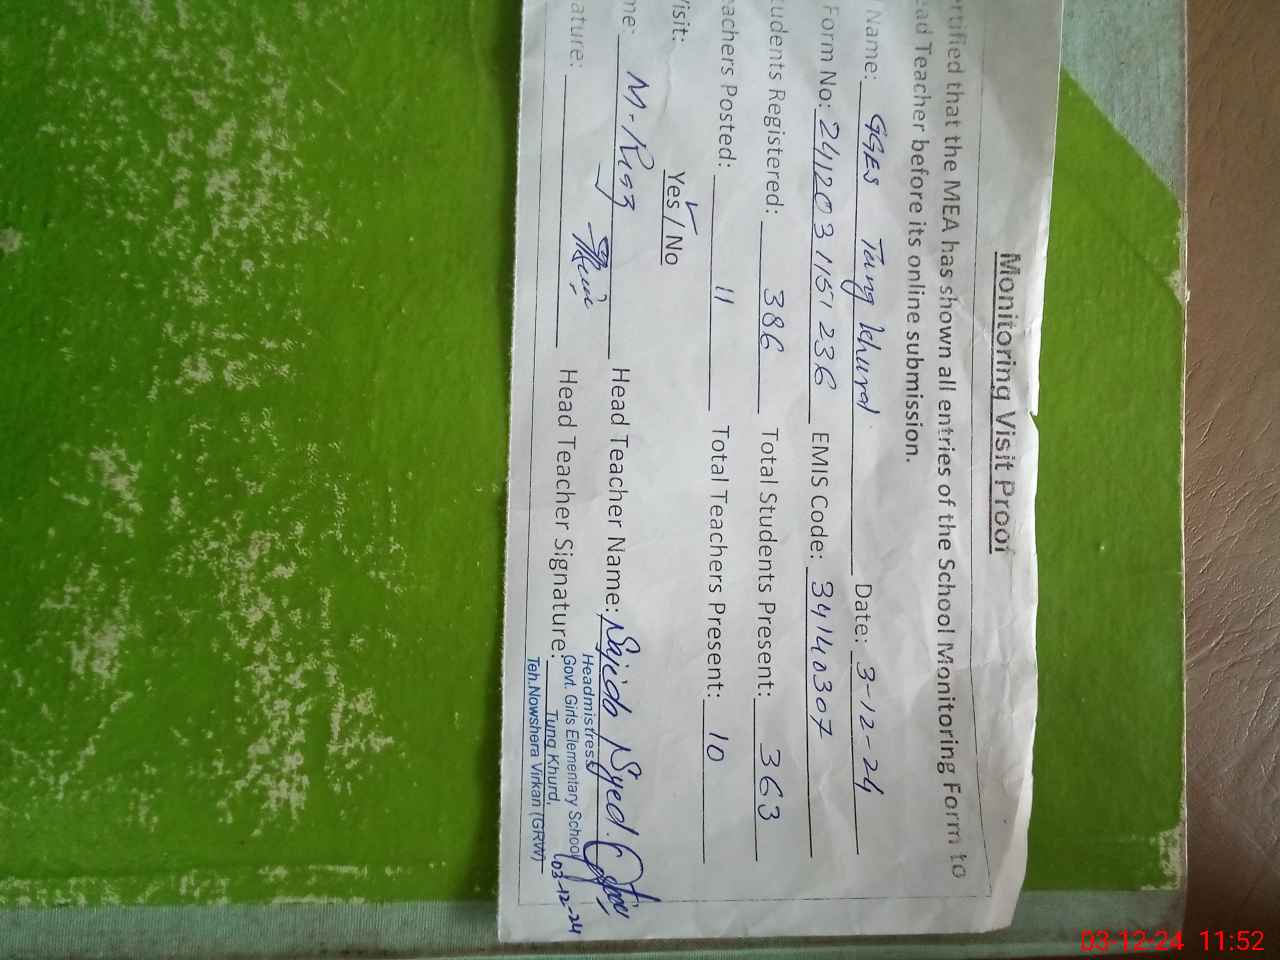 Monitoring Visit Proof
ertified that the MEA has shown all entries of the School Monitoring Form to
ead Teacher before its online submission.
Name: GGES Tung Khurd Date: 3-12-24
Form No: 241203 1151 236 EMIS Code: 34140307
tudents Registered: 386 Total Students Present: 363
eachers Posted: 11 Total Teachers Present: 10
isit: Yes / No
me: M-Riaz Head Teacher Name: Sajida Syed.
ature: Head Teacher Signature:
Headmistress
Govt. Girls Elementary School
Tung Khurd,
Teh.Nowshera Virkan (GRW)
03-12-24
03-12-24 11:52